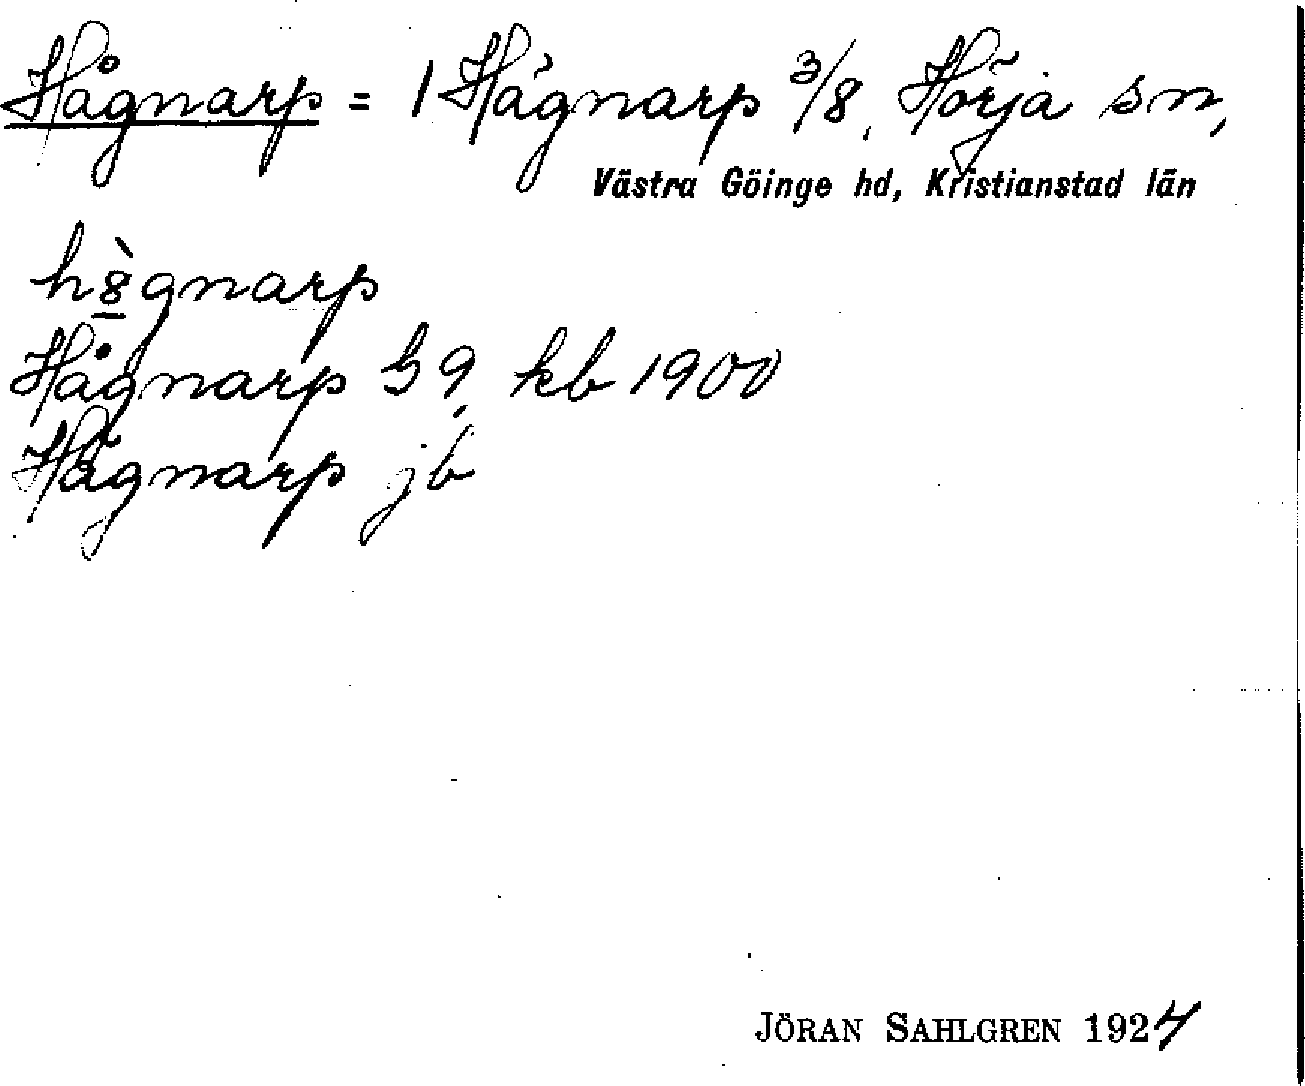 Hågnarp = 1 Hågnarp 3/8, Hörja sn,
Västra Göinge hd, Kristianstad län
h8̲̀gnarp
Hågnarp G 9, kb 1900
Hågnarp jb
JÖRAN SAHLGREN 1924